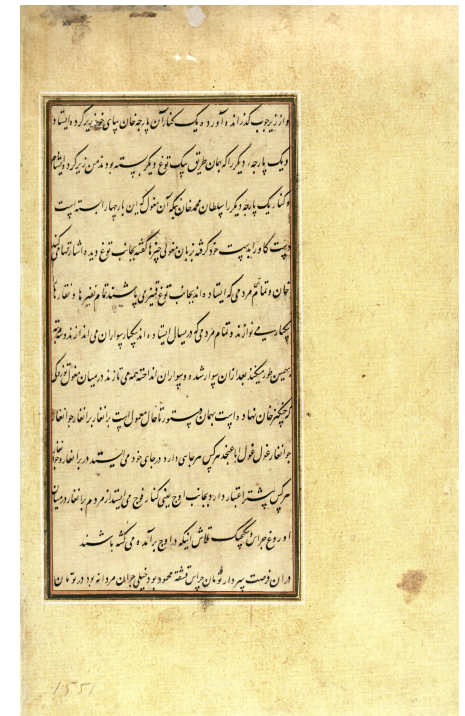 و از زیر چوب گذرانده آورده یک کنار آن پارچه خان بپای خود زیر کرده ایستاد
و یک پارچه دیگر را که همان طریق بیک توغ دیگر بسته بود ند من زیر کرده ایستادم
و کنار یک پارچه دیگر را سلطان محمد خان آن مغول که این بار چهارا بسته است
دست کاو را بدست خود گرفته بزبان مغولی چیزها گفته بجانب توغ دیده اشارتها می کند
خان و تمام مردمی که ایستاده اند بجانب توغ قمیزی پاشند تمام نفیر ها و نقار ها
بیکبار می نوازند و تمام مردمی که در یسال ایستاده اند یکبار سواران می اندازند سه مرتبه
بهمین طور میکنند بعد ازان سوار شده و سواران انداخته می تازند در میان مغول توزوکی
که چنکیز خان نهاده است بهمان دستور تا حال معمول است برانغار برانغار جوانغار
جوانغار غول غول اباعنجد هر کس هر جای دارد در جای خود می ایستند در برانغار و جوانغار
هر کس پیشتر اعتبار دارد بجانب اوج یعنی کنار فوج می ایستد از مردم برانغار در میان
اوروغ جراس بیکچیک تلاش اینکه در اوج برآمده می کشه باشند
دران فرصت سردار تومان جراس قشقه محمود بود خیلی جوان مردانه بود در تومان
1551